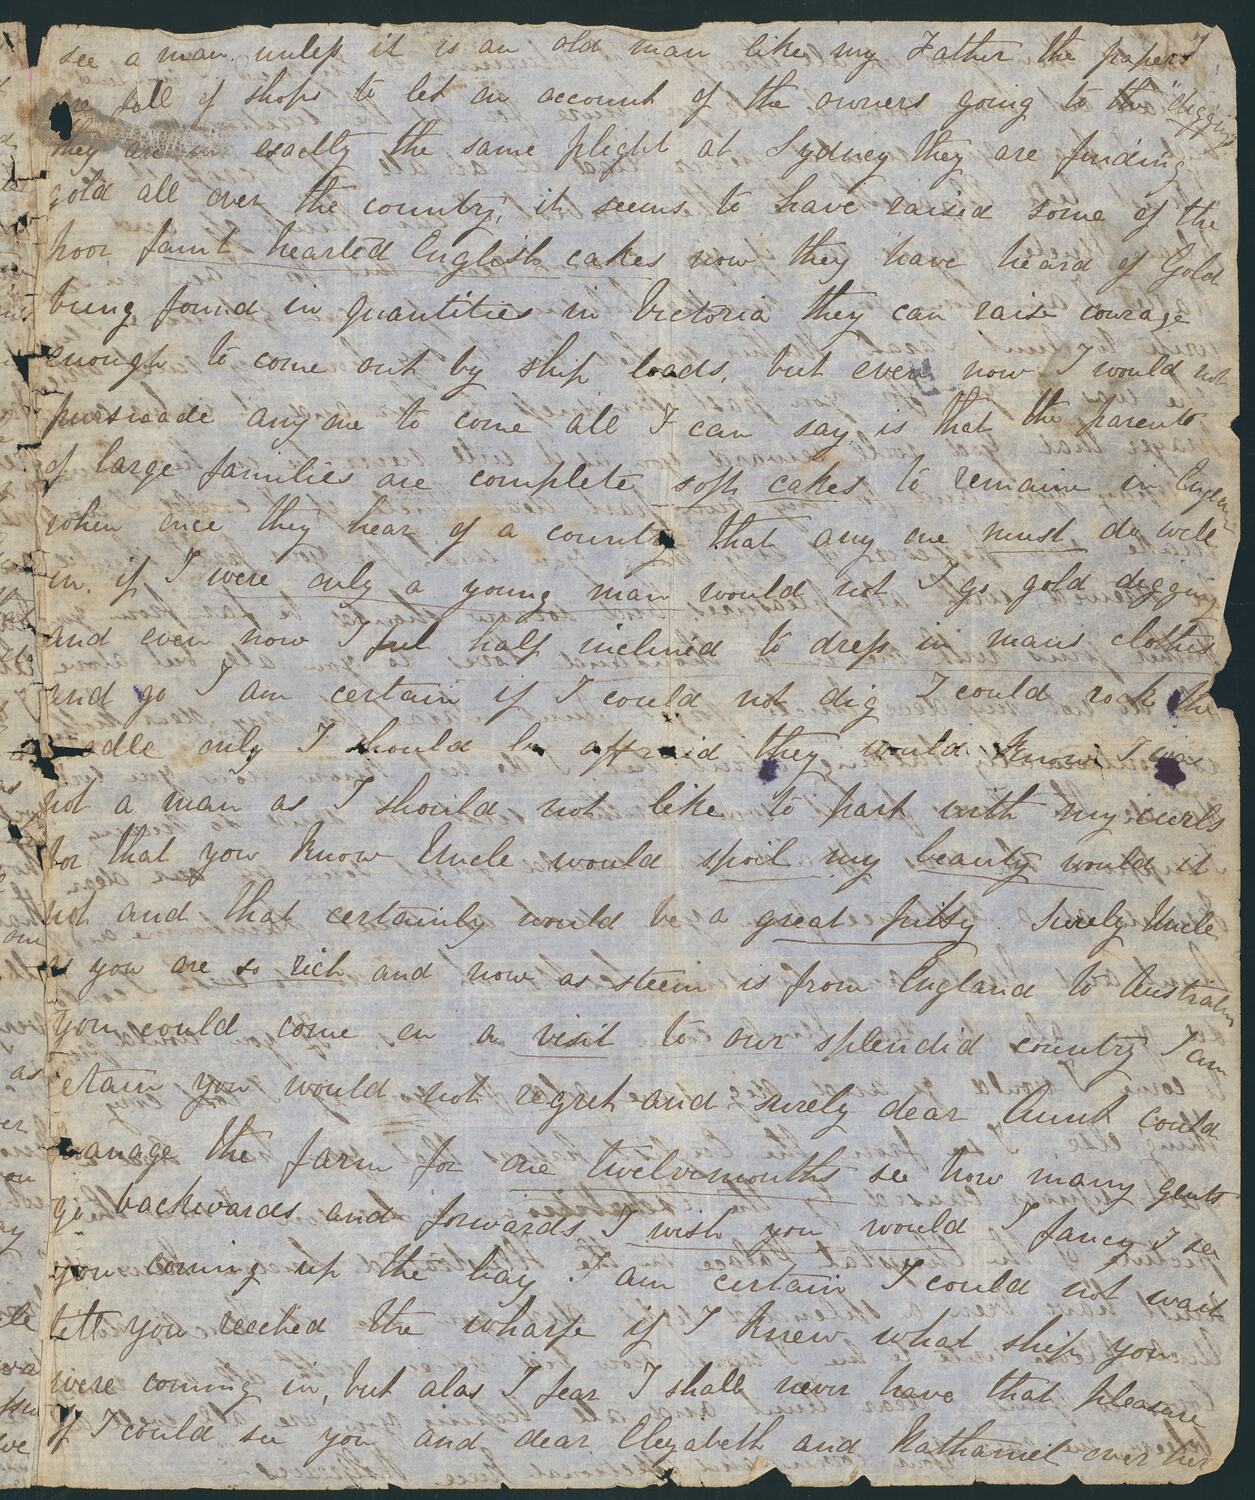 see a man unless it is an old man like my Father the papers
are full of shops to let on account of the owners going to the "diggings
they are in exactly the same plight at Sydney they are finding
gold all over the country, it seems to have raised some of the
poor faint hearted English cakes now they have heard of Gold
being found in quantities in Victoria they can raise courage
enough to come out by ship loads, but even now I would not
pursuade anyone to come all I can say is that the parents
of large families are complete soft cakes to remain in
when once they hear of a country that any one must do well
in. if I were only a young man would not I go gold digging
and even now I feel half inclined to dress in mans clothes
and go I am certain if I could not dig I could rock the
cradle only I should be affraid they would know I was
not a man as I should not like to part with my curls
for that you know Uncle would spoil my beauty would it
not and that certainly would be a great pitty. Surely Uncle
as you are so rich and now as steem is from England to Australia
you could come on a visit to our splendid country I am
certain you would not regret and surely dear Aunt could
manage the farm for one twelvemonths see how many gents
go backwards and forwards I wish you would I fancy I see
you coming up the bay. I am certain I could not wait
till you reeched the wharfe if I knew what ship you
were coming in, but alas I fear I shall never have that pleasure
if I could see you and dear Elezabeth and Nathaniel over her